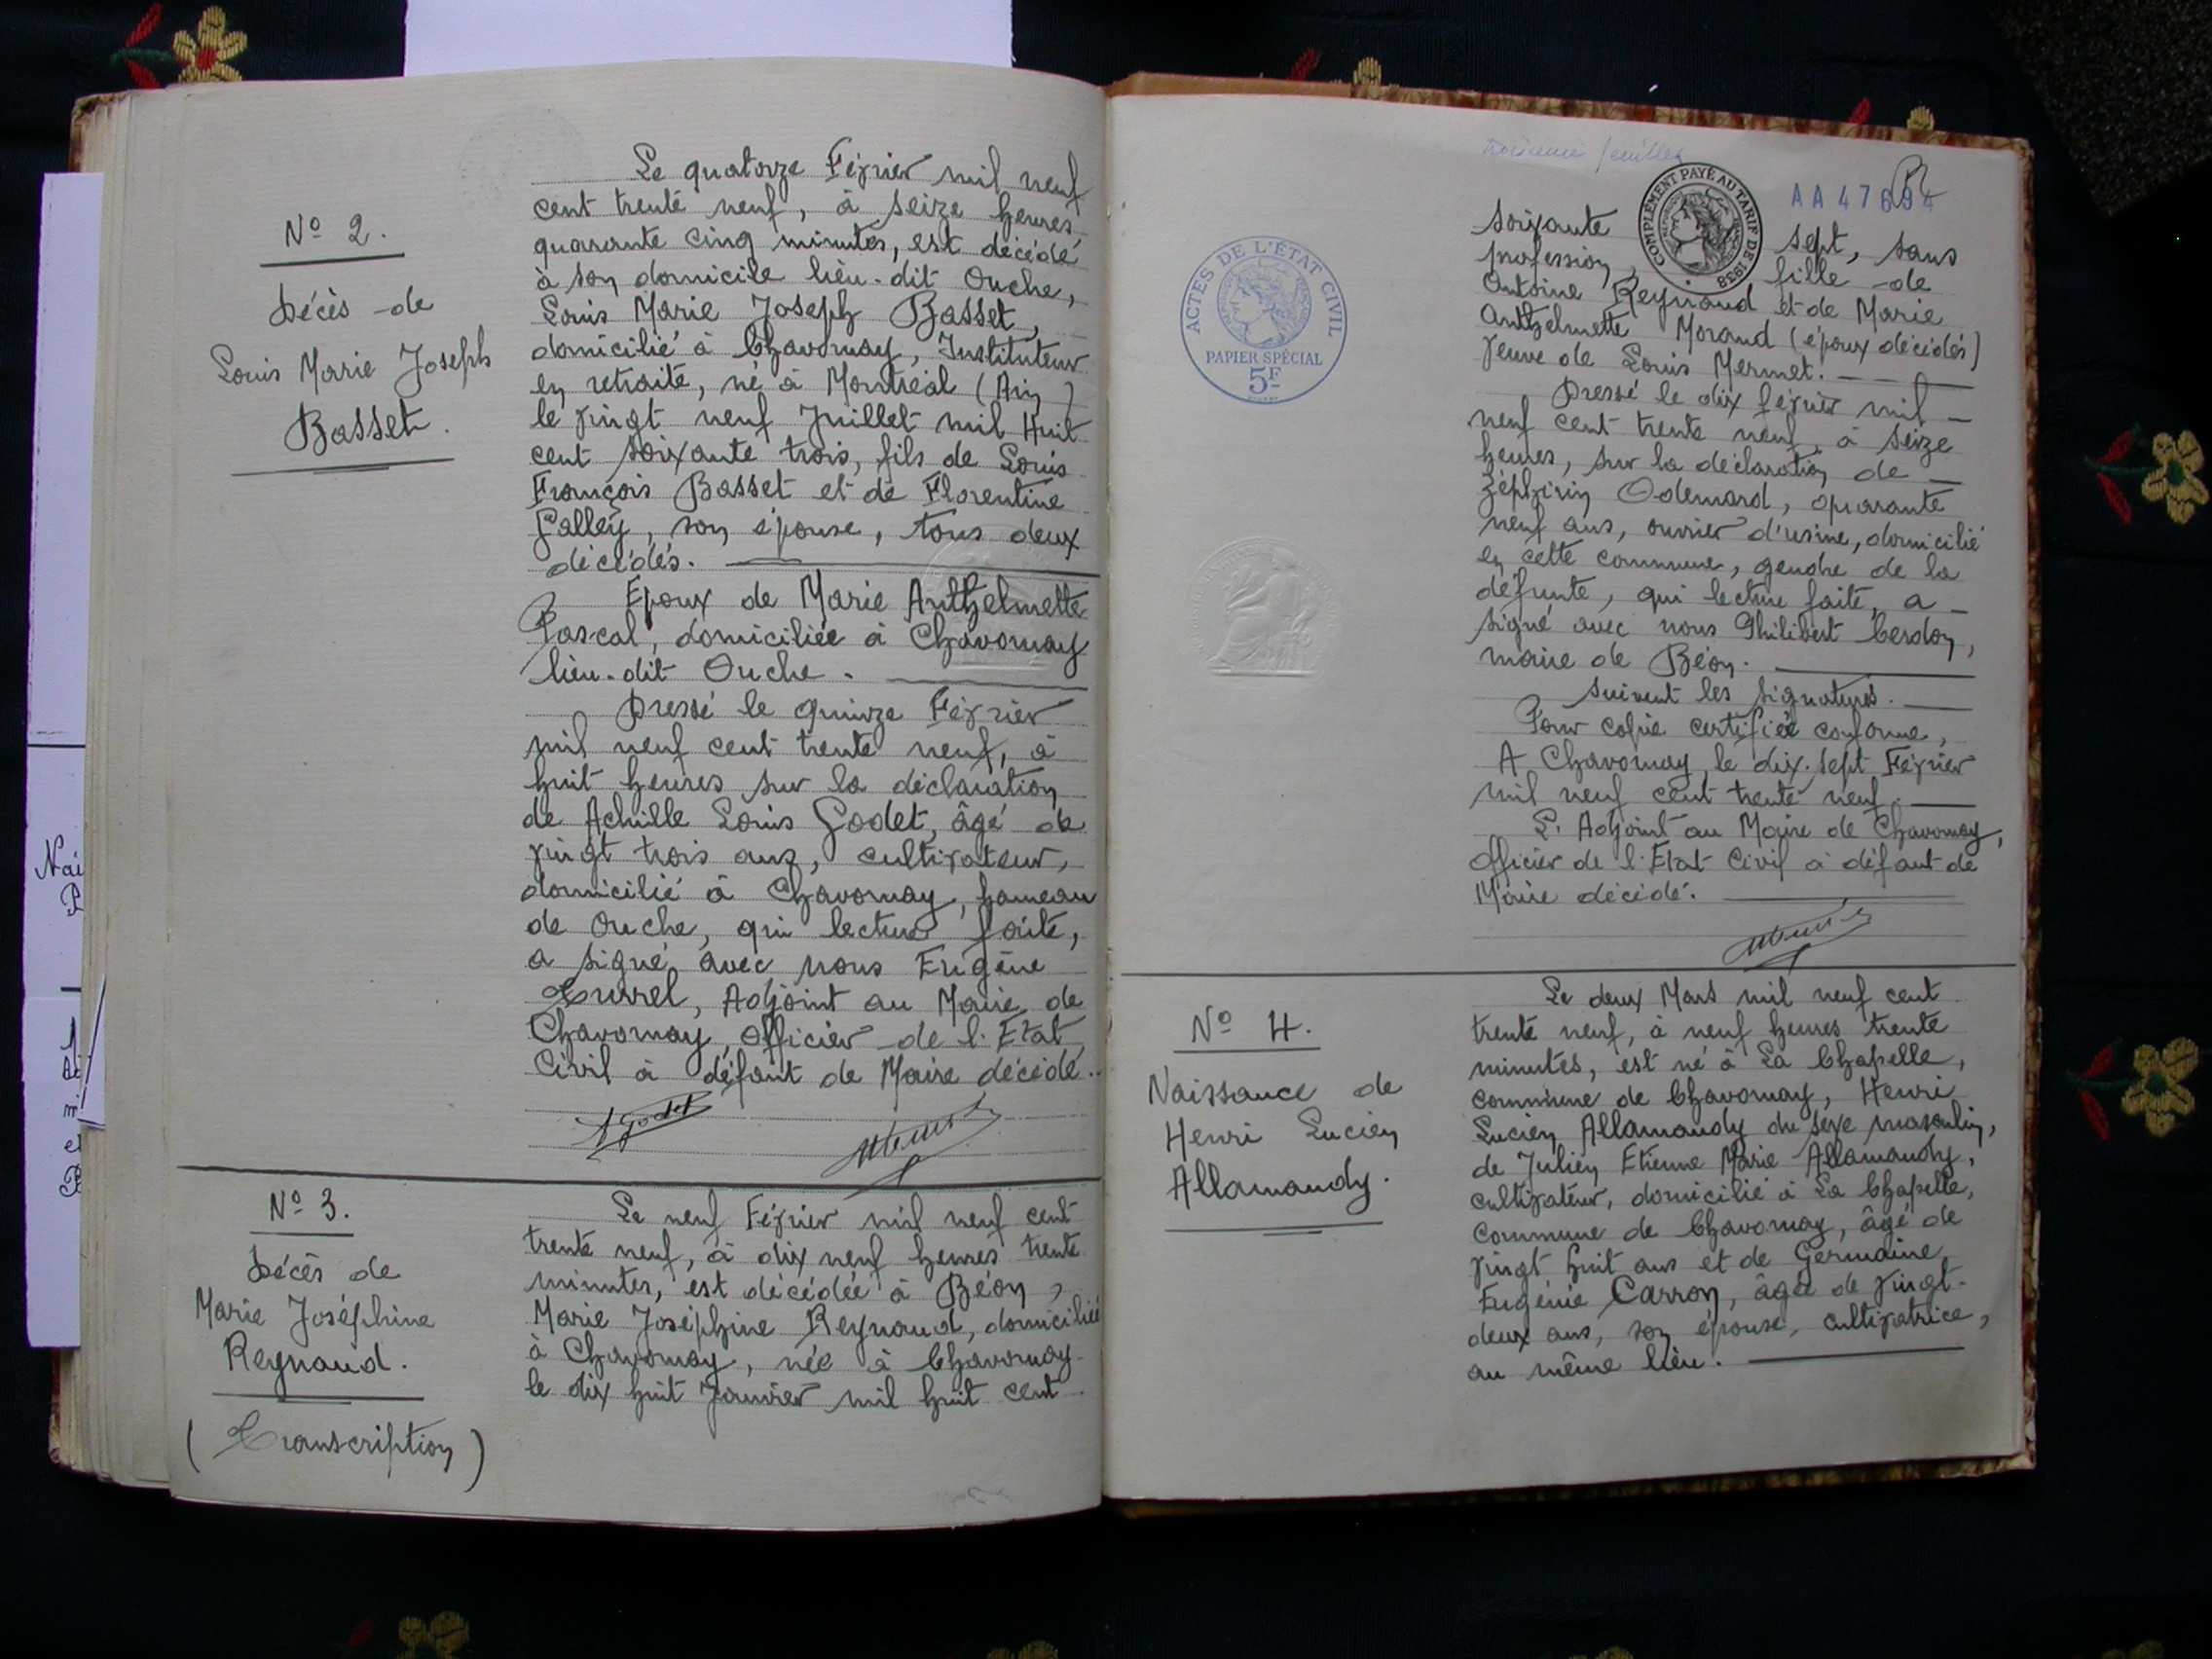 Nº 2.
Décès de
Louis Marie Joseph
Basset.
Le quatorze Février mil neuf
cent trente neuf, à seize heures
quarante cinq minutes, est décédé
à son domicile lieu-dit Ouche,
Louis Marie Joseph Basset,
domicilié à Chavornay, Instituteur
en retraite, né à Montréal (Ain)
le vingt neuf Juillet mil Huit
cent soixante trois, fils de Louis
François Basset et de Florentine
Galley, son épouse, tous deux
décédés.
Epoux de Marie Anthelmette
Pascal, domiciliée à Chavornay
lieu-dit Ouche.
Dressé le quinze Février
mil neuf cent trente neuf, à
huit heures sur la déclaration
de Achille Louis Godet, âgé de
vingt trois ans, cultivateur,
domicilié à Chavornay, hameau
de Ouche, qui lecture faite,
a signé avec nous Eugène
Adjoint au Maire de
Chavornay, officier de l'Etat
Civil à défaut de Maire décédé.
AGodet
Nº 3.
Décès de
Marie Joséphine
Reynaud.
(Transcription)
Le neuf Février mil neuf cent
trente neuf, à dix neuf heures trente
minutes, est décédée à Béon,
Marie Joséphine Reynaud, domiciliée
à Chavornay, née à Chavornay
le dix huit Janvier mil huit cent
troisième feuillet
COMPLÉMENT PAYÉ AU TARIF DE 1938
AA 47694
ACTES DE L'ÉTAT CIVIL
PAPIER SPÉCIAL
5F
soixante sept, sans
profession, fille de
Antoine Reynaud et de Marie
Anthelmette Morand (époux décédés)
veuve de Louis Mermet.
Dressé le dix février mil
neuf cent trente neuf, à seize
heures, sur la déclaration de
Zéphirin Odemard, quarante
neuf ans, ouvrier d'usine, domicilié
en cette commune, gendre de la
défunte, qui lecture faite, a
signé avec nous Philibert Cerdon,
maire de Béon.
suivent les signatures.
Pour copie certifiée conforme,
A Chavornay le dix-sept Février
mil neuf cent trente neuf.
L'Adjoint au Maire de Chavornay,
officier de l'Etat Civil à défaut de
Maire décédé.
Nº 4.
Naissance de
Henri Lucien
Allamandy.
Le deux Mars mil neuf cent
trente neuf, à neuf heures trente
minutes, est né à La Chapelle,
commune de Chavornay, Henri
Lucien Allamandy du sexe masculin,
de Julien Etienne Marie Allamandy,
cultivateur, domicilié à La Chapelle,
commune de Chavornay, âgé de
vingt huit ans et de Germaine
Eugénie Carron, âgée de vingt-
deux ans, son épouse, cultivatrice,
au même lieu.